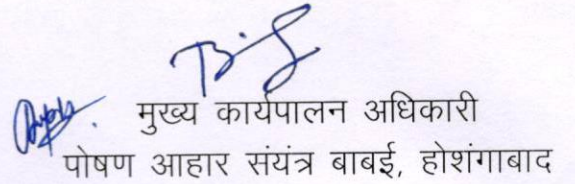 मुख्य कार्यपालन अधिकारी
पोषण आहार संयंत्र बाबई, होशंगाबाद